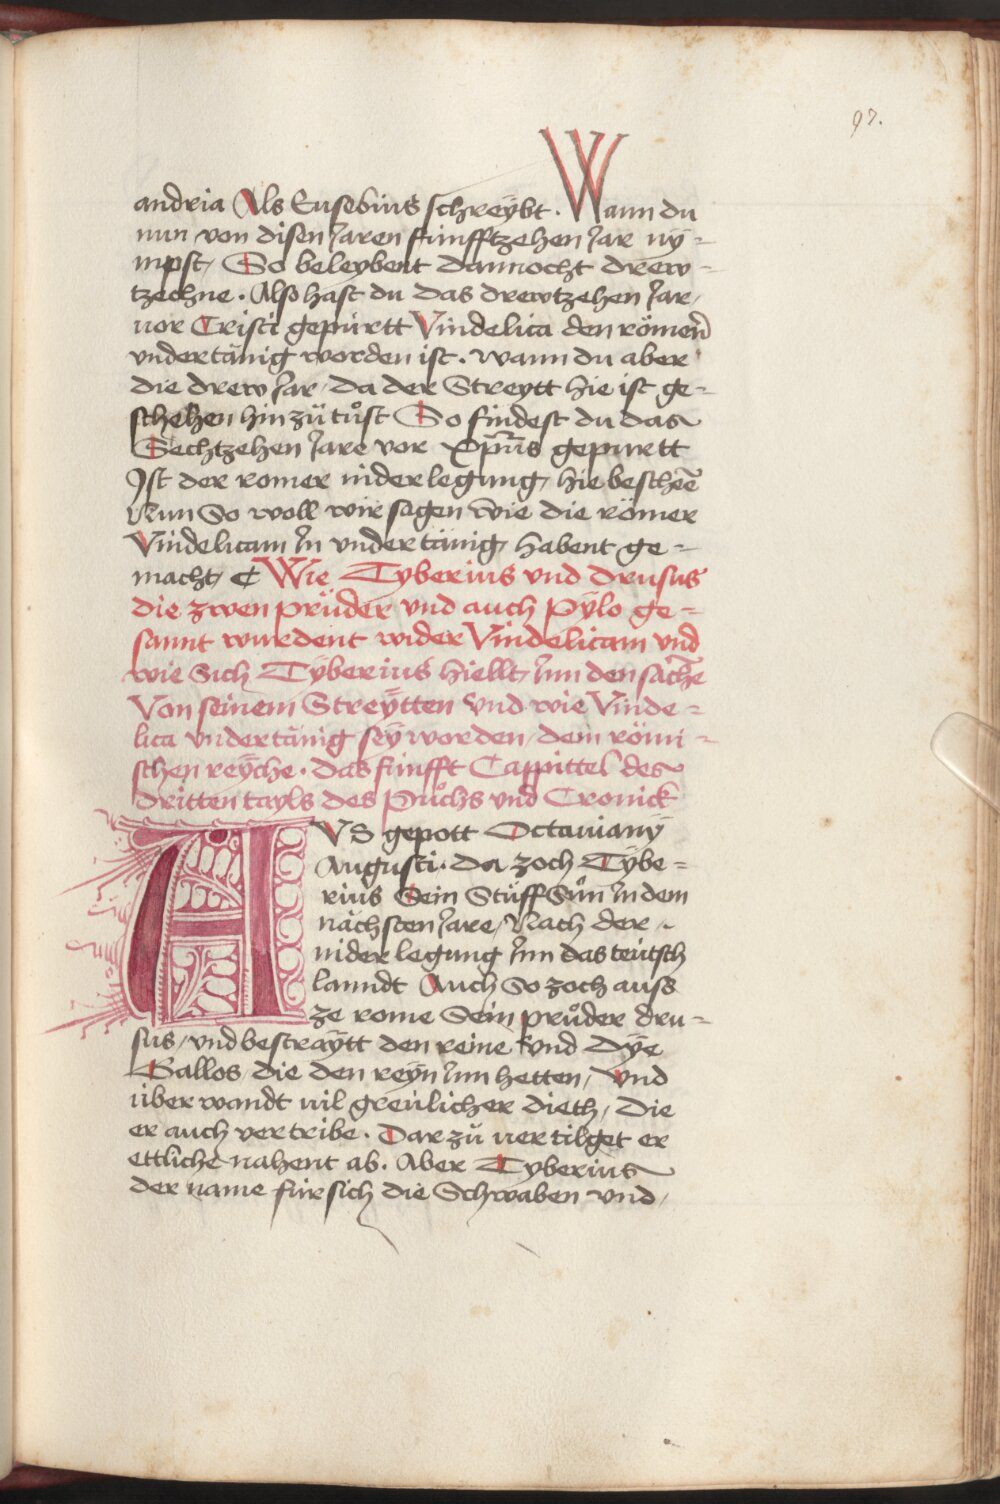 97.
andria Als Eusebius schreÿbt. Wann du
nun von disen Jaren funfftzehen Jar nÿ=
mpst, So beleybent dannocht drew=
tzechne. Also hast du das drewtzehen Jar,
vor Cristi gepurtt Vindelica den römeñ
vndertänig worden ist. wann du aber
die drew Jar, da der Streytt hie ist ge=
schehen hin zu tůst So findest du das
Sechtzehen Jare vor Xp̄us gepurtt
Ist der romer niderlegung, hie bescheē
Nun So woll wir sagen wie die römer
Vindelicam In vndertänig, habent ge=
macht, ¶ Wie Tyberius vnd drusus
die zwen prüder vnd auch Pÿlo ge=
sannt wurdent wider Vindelicam vnd
wie Sich Tÿberius hiellt, Inn den sachē
Von seinem Streÿtten Vnd wie Vinde=
lica vndertänig seÿ worden, dem römi=
schen reÿche. das funfft Cappittel des
dritten tayls des Půchs vnd Cronick
AVS gepott Octauianÿ
Augusti. da zoch Tÿbe=
rius Sein Stüff Sůn In dem
nächsten Jare, Nach der,
niderlegung Inn das teütsch
lanndt Auch So zoch auss
ze rome Sein průder dru=
sus, vnd bestraÿtt den reine Vnd dÿe
Gallos, die den reÿn Inn hetten, Vnd
uberwandt vil greulicher dieth, die
er auch vertribe. Darzů vertilget er
ettliche nahent ab. Aber Tyberius
der name für sich die Schwaben vnd,